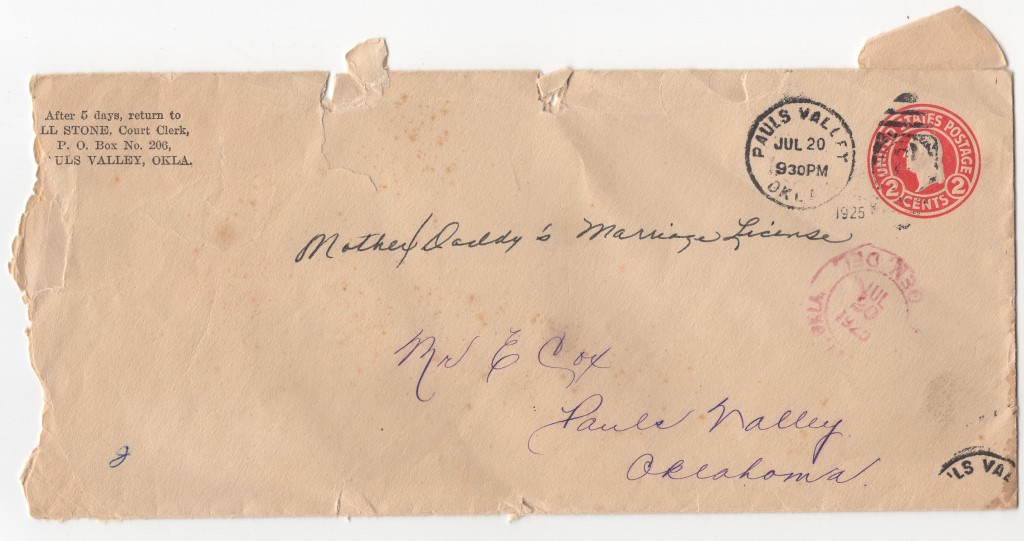 After 5 days, return to
LL STONE, Court Clerk,
P. O. Box No. 206,
ULS VALLEY, OKLA.
PAULS VALLEY
JUL 20
930PM
OKL
1925
UNITED STATES POSTAGE
2 CENTS 2
Mother/Daddy's Marriage License
GEN. DEL.
JUL
20
1925
OKLA
Mr E Cox
Pauls Valley
Oklahoma
'LS VAL